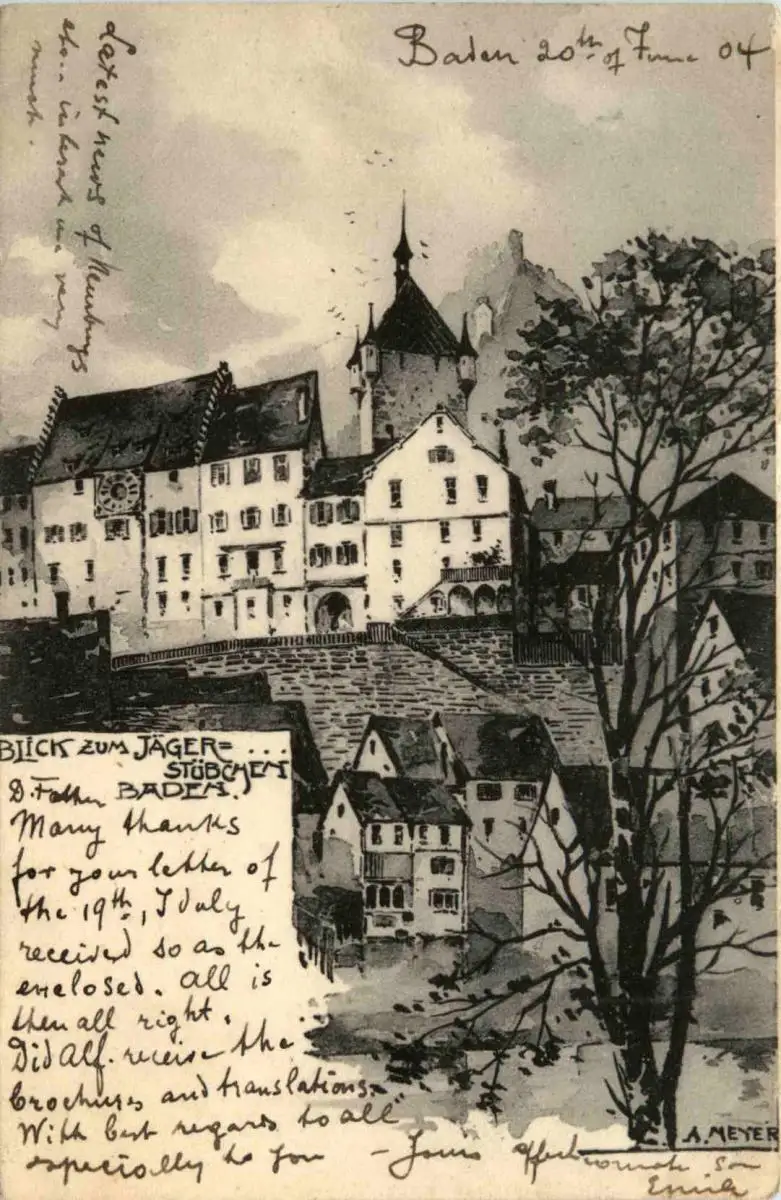 Baden 20th of June 04
Latest news of
etc.. interest me very
much.
BLICK ZUM JÄGER= ...
STÜBCHEN
BADEN.
D. Father
Many thanks
for your letter of
the 19th, I duly
received so as the
enclosed. All is
then all right.
Did Alf. receive the
brochures and translations.
With best regards to all
especially to you – Yours affectionate son
Emile
A. MEYER